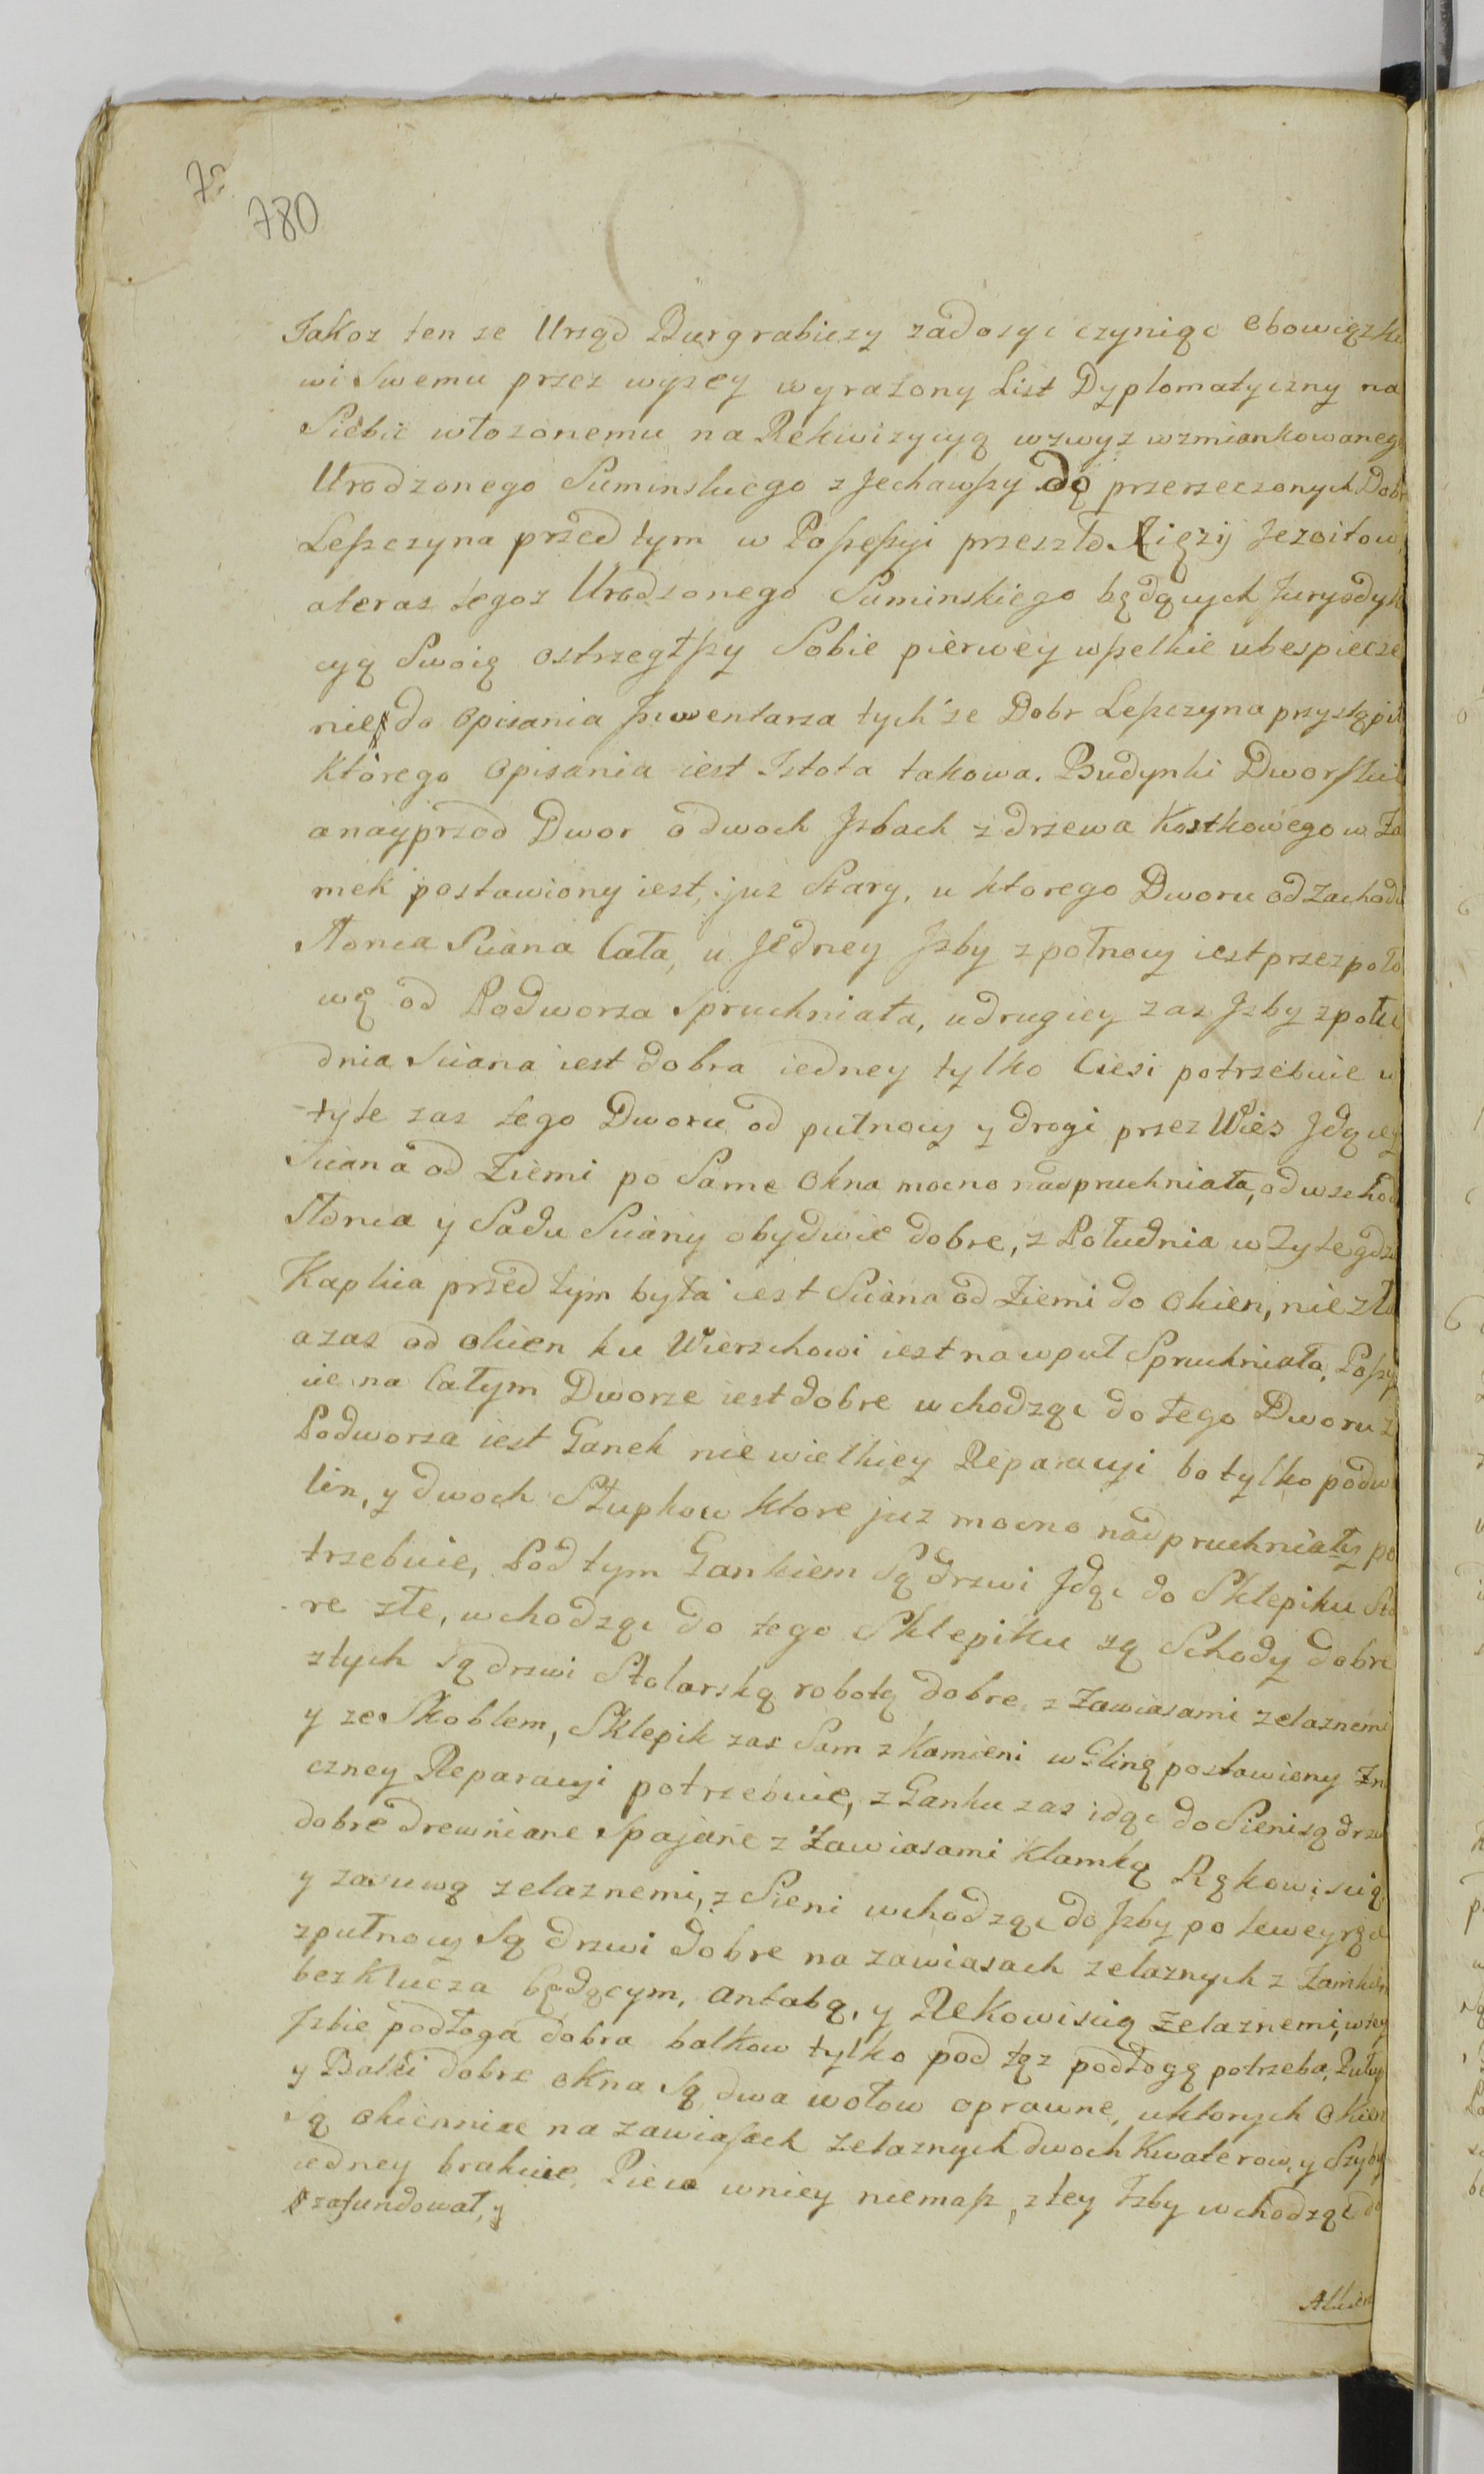 780
Jakoz ten ze Urząd Burgrabiczy zadosyc czyniąc obowiązko
wi Swemu przez wyzey wyrazony List Dyplomatyczny na
Siebie włozonemu na Rekwizycyą wzwyz wzmiankowaneg
Urodzonego Suminskiego zJechawſzy do przerzeczonych Dobr
Leſzczyna przed tym w Poſseſsyi przeszło Xięzy Jezuitow,
ateraz tegoz Urodzonego Suminskiego będących Jurysdyk
cyą Swoię ostrzegłſzy Sobie pierwey wſzelkie ubespiecze
nie do Opisania Jnwentarza tych ze Dobr Leſzczyna przystąpił
ktorego Opisania iest Istota takowa. Budynki Dworſkie
a nayprzod Dwor o dwoch Jzbach z drzewa Kostkowego w Za
mek postawiony iest, juz Stary, u ktorego Dworu od Zachodu
Słonca Sciana Cała, u Jedney Jzby z połnocy iest przez poło
wę od Podworza Spruchniała, u drugiey zas Jzby z połu
dnia Sciana iest dobra iedney tylko Ciesi potrzebuie w
tyle zas tego Dworu od pułnocy y drogi przez Wies Jdącey
Sciana od Ziemi po Same Okna mocno nadpruchniała, od wschod
Słonca y Sadu Sciany obydwie dobre, z Południa w Tyle gdzie
Kaplica przed tym była iest Sciana od Ziemi do Okien, niezła
a zas od okien ku Wierzchowi iest na wpuł Spruchniała, Poſzy
cie na Całym Dworze iest dobre wchodząc do tego Dworu z
Podworza iest Ganek nie wielkiey Reparacyi bo tylko podwa
lin, y dwoch Słupkow ktore juz mocno nadpruchniały po
trzebuie, Pod tym Gankiem Są drzwi Jdąc do Sklepiku Sta
re złe, wchodząc do tego Sklepiku są Schody dobre
z tych są drzwi Stolarską robotą dobre z Zawiasami zelaznemi
y ze Skoblem, Sklepik zas Sam z Kamieni w Glinę postawiony Zna
czney Reparacyi potrzebuie, z Ganku zas idąc do Sieni są drzwi
dobre drewniane Spajane z Zawiasami Klamką Rękowiscią
y zasuwą zelaznemi, z Sieni wchodząc do Jzby po lewey ręce
z pułnocy Są drzwi dobre na zawiasach zelaznych z Zamkiem
bez Klucza będącym, Antabą, y Rekowiscią Zelaznemi, w tey
Jzbie podłoga dobra balkow tylko pod tęz podłogę potrzeba, Pułap
y Balki dobre Okna Są dwa w ołow oprawne, u ktorych Okien
Są Okiennice na zawiaſach Zelaznych dwoch Kwaterow, y Szyby
iedney brakuie, Pieca w niey niemaſz, z tey Jzby wchodząc do
zafundował, y
Alkierz